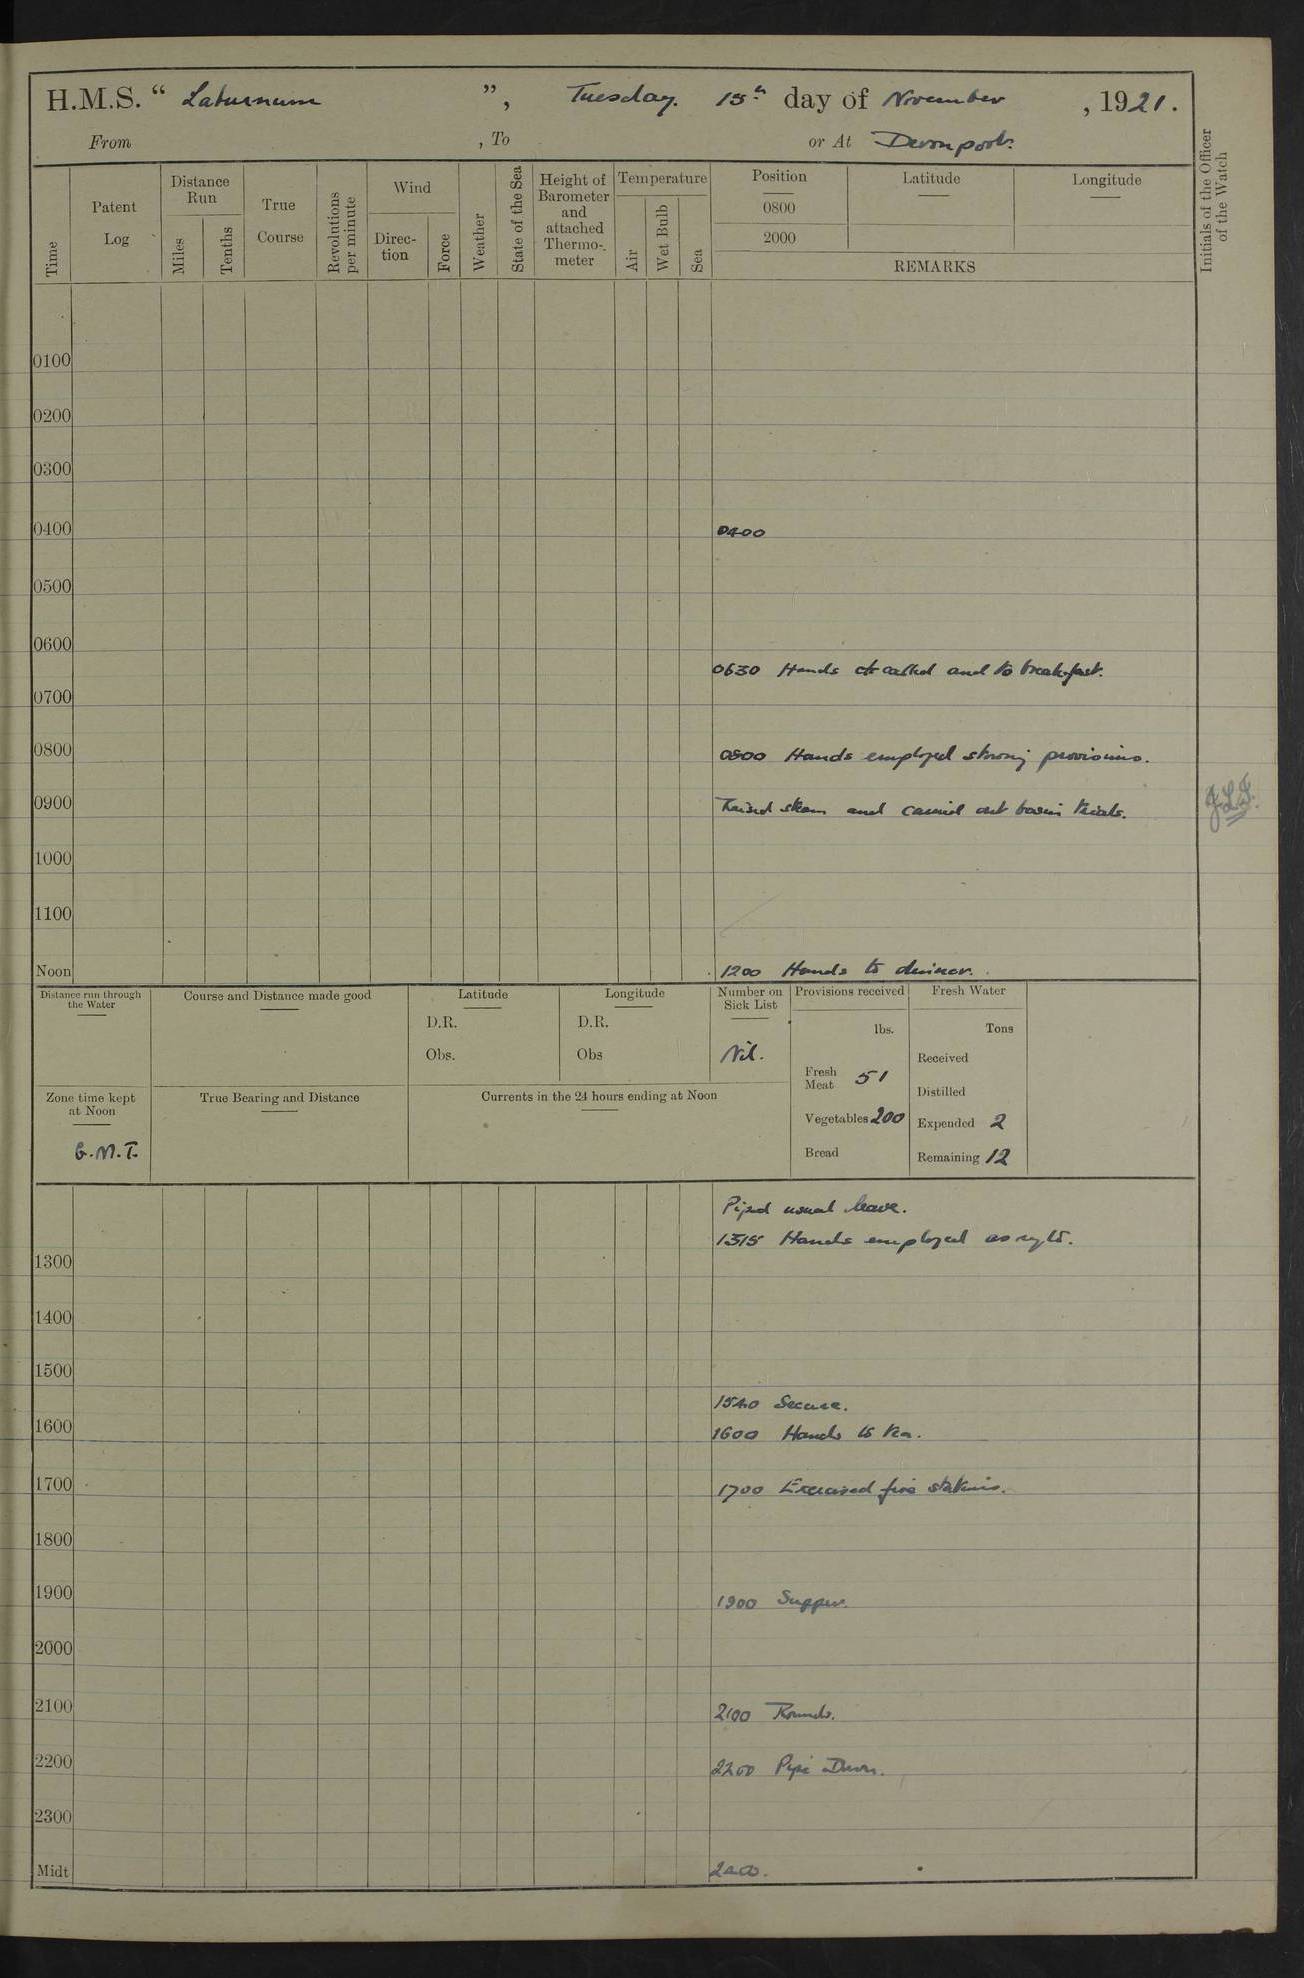 H.M.S. “ Laburnum ”, Tuesday. 15th day of November, 1921.
From , To or At Devonport.
Time
Patent Log
Distance Run
Miles
Tenths
True Course
Revolutions per minute
Wind
Direc-tion
Force
Weather
State of the Sea
Height of Barometer and attached Thermo-meter
Temperature
Air
Wet Bulb
Sea
Position
0800
2000
Latitude
Longitude
REMARKS
Initials of the Officer of the Watch
0100
0200
0300
0400 0400
0500
0600
0630 Hands called and to breakfast.
0700
0800 0800 Hands employed storing provisions.
0900 Raised steam and carried out basin trials. J.L.F.
1000
1100
Noon 1200 Hands to dinner.
Distance run through the Water
Course and Distance made good
Latitude
D.R.
Obs.
Longitude
D.R.
Obs
Number on Sick List
Nil.
Provisions received
lbs.
Fresh Meat 51
Vegetables 200
Bread
Fresh Water
Tons
Received
Distilled
Expended 2
Remaining 12
Zone time kept at Noon
G.M.T.
True Bearing and Distance
Currents in the 24 hours ending at Noon
Piped usual leave.
1315 Hands employed as reqte.
1300
1400
1500
1540 Secure.
1600 1600 Hands to tea.
1700 1700 Exercised fire stations.
1800
1900 1900 Supper.
2000
2100 2100 Rounds.
2200 2200 Pipe Down.
2300
Midt 2400.